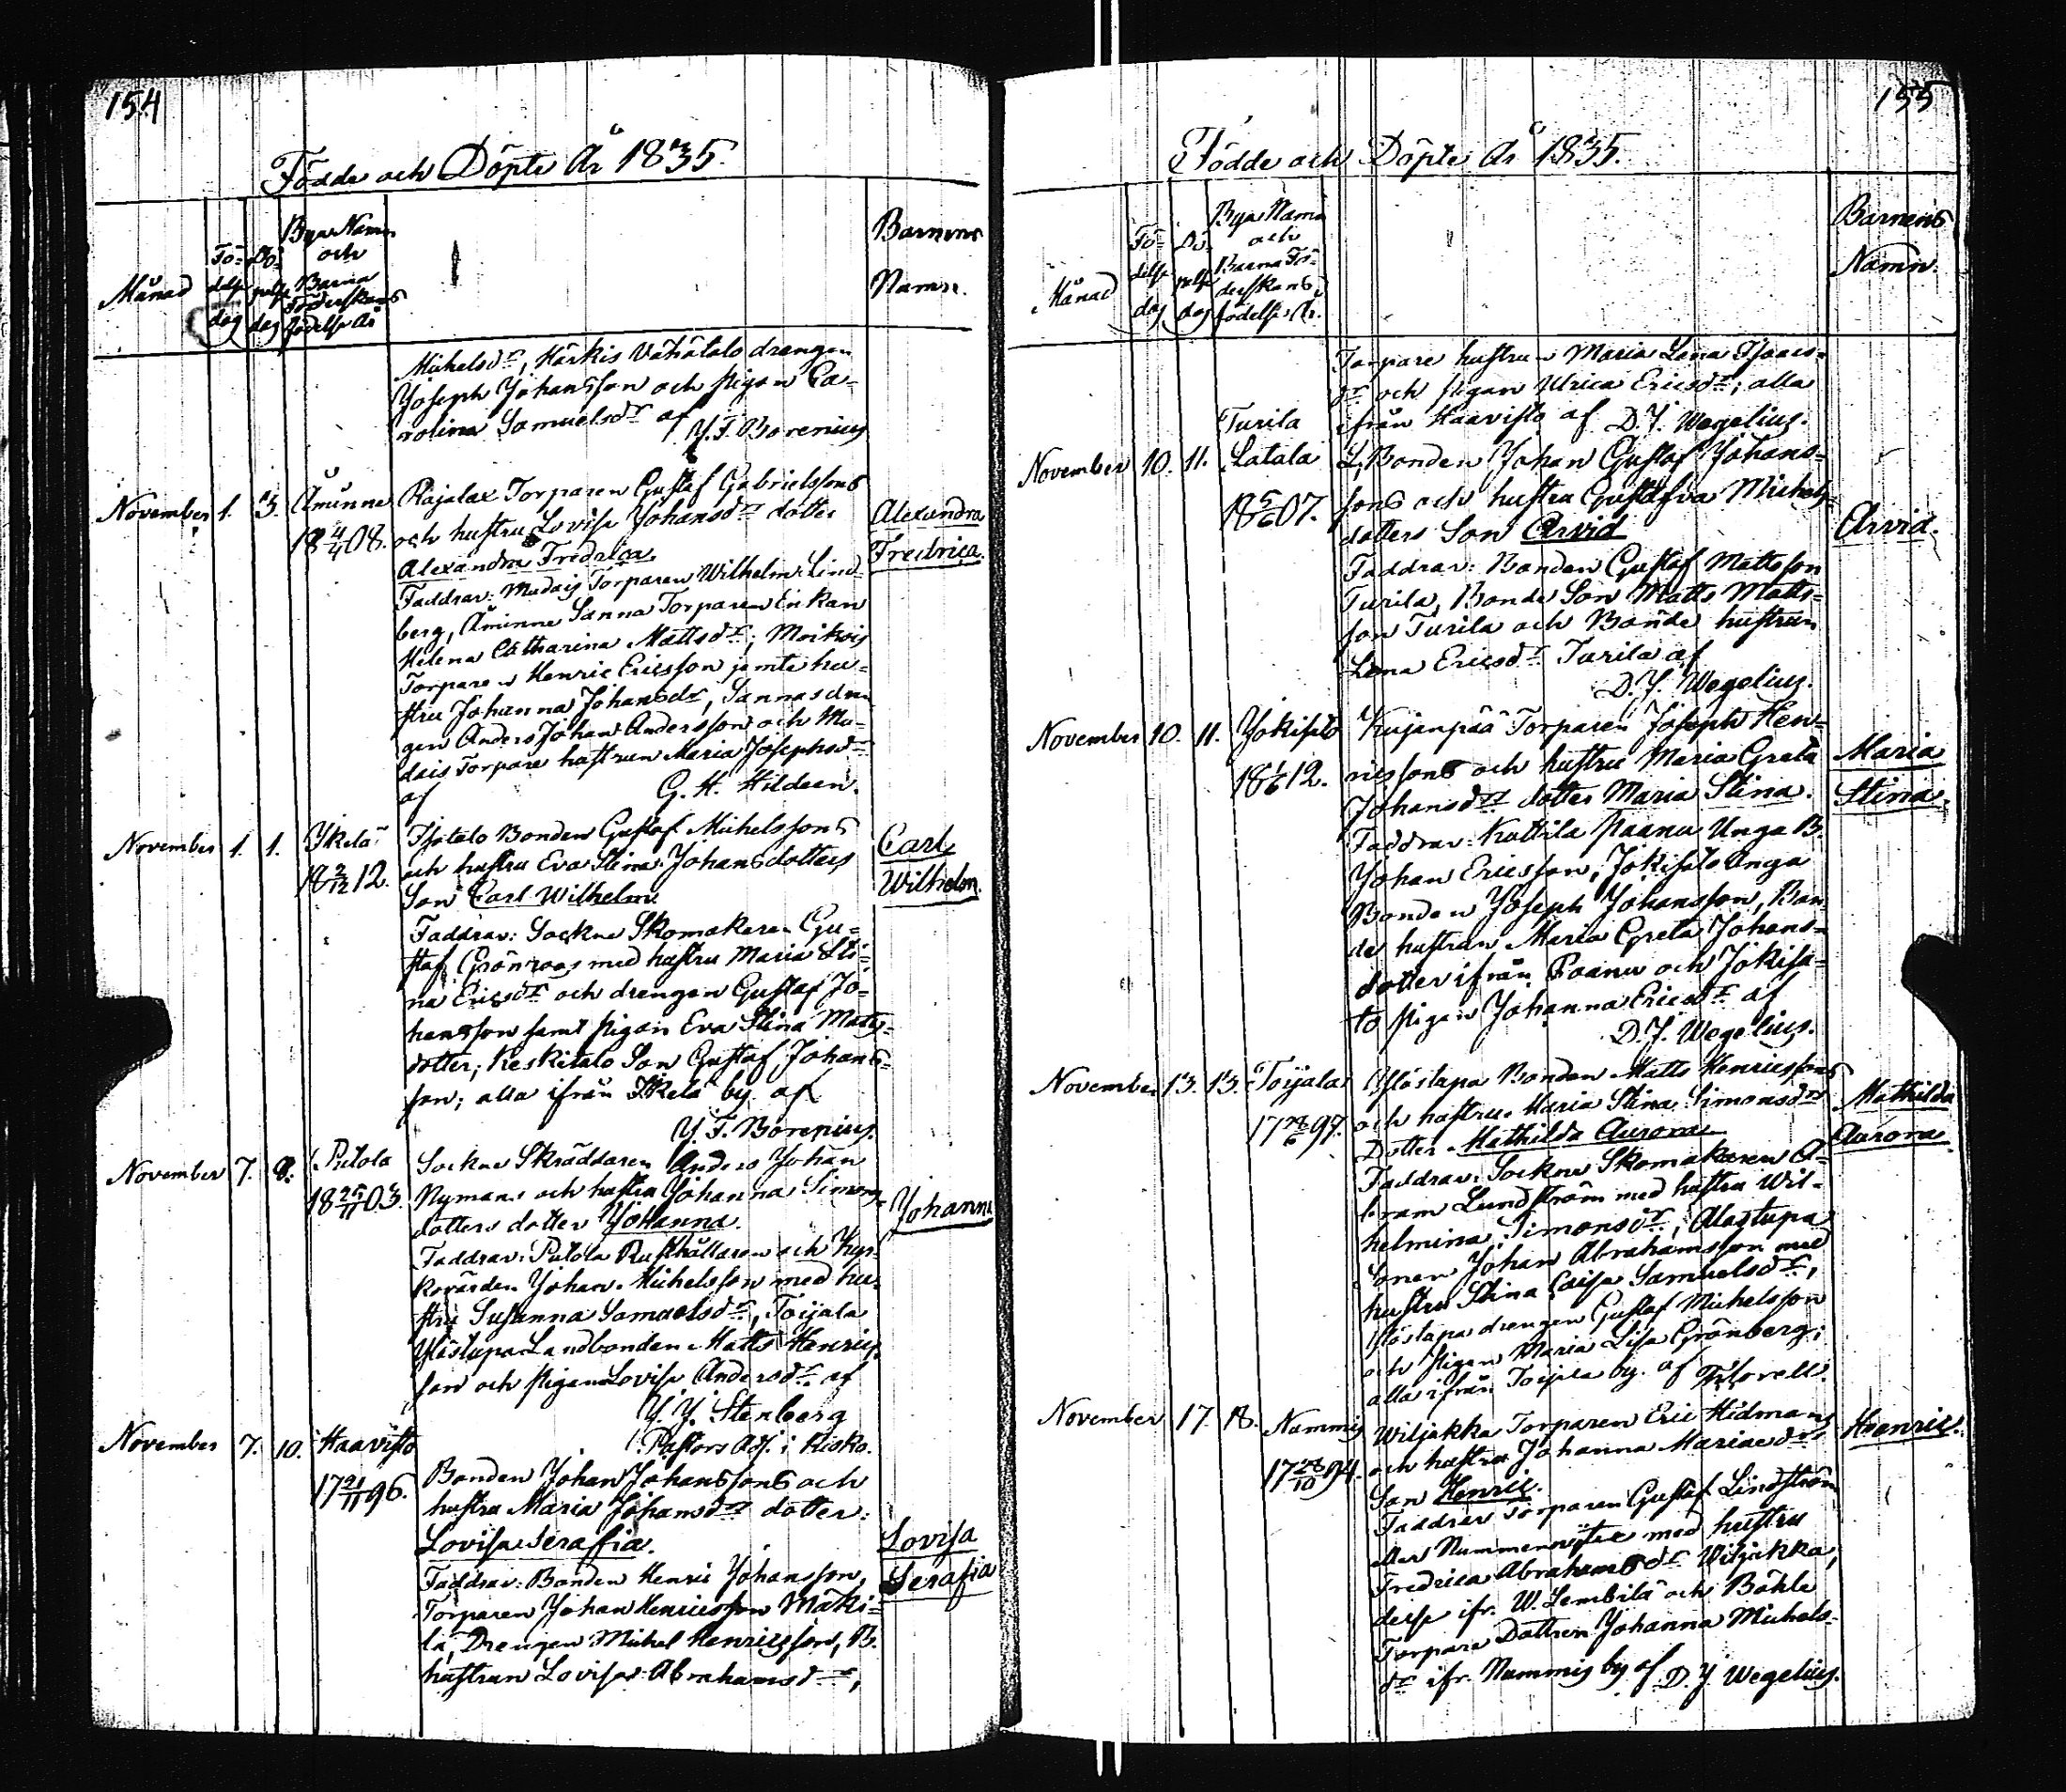 154
Födde och Döpte År 1835.
Månad
Fö-
delse
dag
Dö-
pelse
dag
Byar Namn
och
Barna
Föderskans
födelse År
Barnens
Namn.
Michelsdr, Härkis Vähätalo drengen
Joseph Johansson och pigan Ca-
rolina Samuelsdr af
Y. F. Borenius
November 1. 3. Åminne Rajalax Torparen Gustaf Gabrielssons
18 4/4 08. och hustru Lovisa Johansdrs dotter
Alexandra Fredrica.
Alexandra
Fredrica.
Faddrar: Madais Torparen Wilhelm Lind-
berg, Åminne Sanna Torpare Enkan
Helena Catharina Mattsdr; Moikois
Torparen Henric Ericsson jemte hu-
stru Johanna Johansdr, Sannas dren-
gen Anders Johan Andersson och Ma-
dais Torpare hustrun Maria Josephsdr
af G. H. Hildeen.
November 1. 1. Ikelä Isotalo Bonden Gustaf Michelssons
18 2/12 12. och hustru Eva Stina Johansdotters
Son Carl Wilhelm.
Carl
Wilhelm.
Faddrar: Sockne Skomakaren Gu-
staf Grönroos med hustru Maria Sti-
na Ericsdr och drengen Gustaf Jo-
hansson samt pigan Eva Stina Matts-
dotter; Keskitalo Son Gustaf Johans-
son; alla ifrån Ikelä by af
Y. F. Borenius.
November 7. 8. Putola Sockne Skräddaren Anders Johan
18 25/11 03. Nymans och hustru Johanna Simons-
dotters dotter Johanna.
Johanna
Faddrar: Putola Rusthållaren och Kyr-
kovärden Johan Michelsson med hu-
stru Susanna Samuelsdr, Toijala
Yliostupa Landbonden Matts Henrics-
son och pigan Lovisa Andersdr af
Y. Y. Stenberg
Pastors Adj. i Kisko.
November 7. 10. Haavisto
17 21/11 96. Bonden Johan Johanssons och
hustru Maria Johansdrs dotter:
Lovisa Serafia.
Lovisa
Serafia
Faddrar: Bonden Henric Johansson,
Torparen Johan Henricsson Mäki-
lä, Drengen Michel Henricsson, B.
hustrun Lovisa Abrahamsdr,
155
Födde och Döpte År 1835.
Månad
Fö-
delse
dag
Dö-
pelse
dag
Byar Namn
och
Barna Fö-
derskans
födelse År.
Barnens
Namn.
Torpare hustrun Maria Lena Isaacs-
dr och pigan Ulrica Ericsdr; alla
ifrån Haavisto af D. J. Wegelius.
Turila
November 10. 11. Latala L. Bonden Johan Gustaf Johans-
18 5/6 07. sons och hustru Gustafva Michels-
dotters Son Arvid
Arvid.
Faddrar: Bonden Gustaf Mattsson
Turila, Bonde Son Matts Matts-
son Turila och Bonde hustrun
Lena Ericsdr Turila af
D. J. Wegelius.
November 10. 11. Jokisito Kujanpää Torparen Joseph Hen-
18 1/6 12. ricssons och hustru Maria Greta
Johansdrs dotter Maria Stina.
Maria
Stina.
Faddrar: Kuttila Paanu Unga B.
Johan Ericsson, Jokisito Unga
Bonden Joseph Johansson, Bon-
de hustrun Maria Greta Johans-
dotter ifrån Paanu och Jokisi-
to pigan Johanna Ericsdr af
D. J. Wegelius.
November 13. 13. Toijala Yliostupa Bonden Matts Henricssons
17 28/6 97. och hustru Maria Stina Simonsdrs
Dotter Mathilda Aurora
Mathilda
Aurora
Faddrar: Sockne Skomakaren A-
bram Lundström med hustru Wil-
helmina Simonsdr, Alastupa
Sonen Johan Abrahamsson med
hustru Stina Caisa Samuelsdr,
Yliostupa drengen Gustaf Michelsson
och pigan Maria Lisa Grönberg;
alla ifrån Toijala by. af Florell.
November 17. 18. Nummis Wiljakka Torparen Eric Hidmans
17 28/10 94. och hustru Johanna Mariaedrs
Son Henric.
Henric.
Faddrar Torparen Gustaf Lindström
med hustru
Fredrica Abrahamsdr Wiljakka,
desse ifr. W. Lembilä och Böhle
Torpare Dottren Johanna Michels-
dr ifr. Nummis by af D. J. Wegelius.